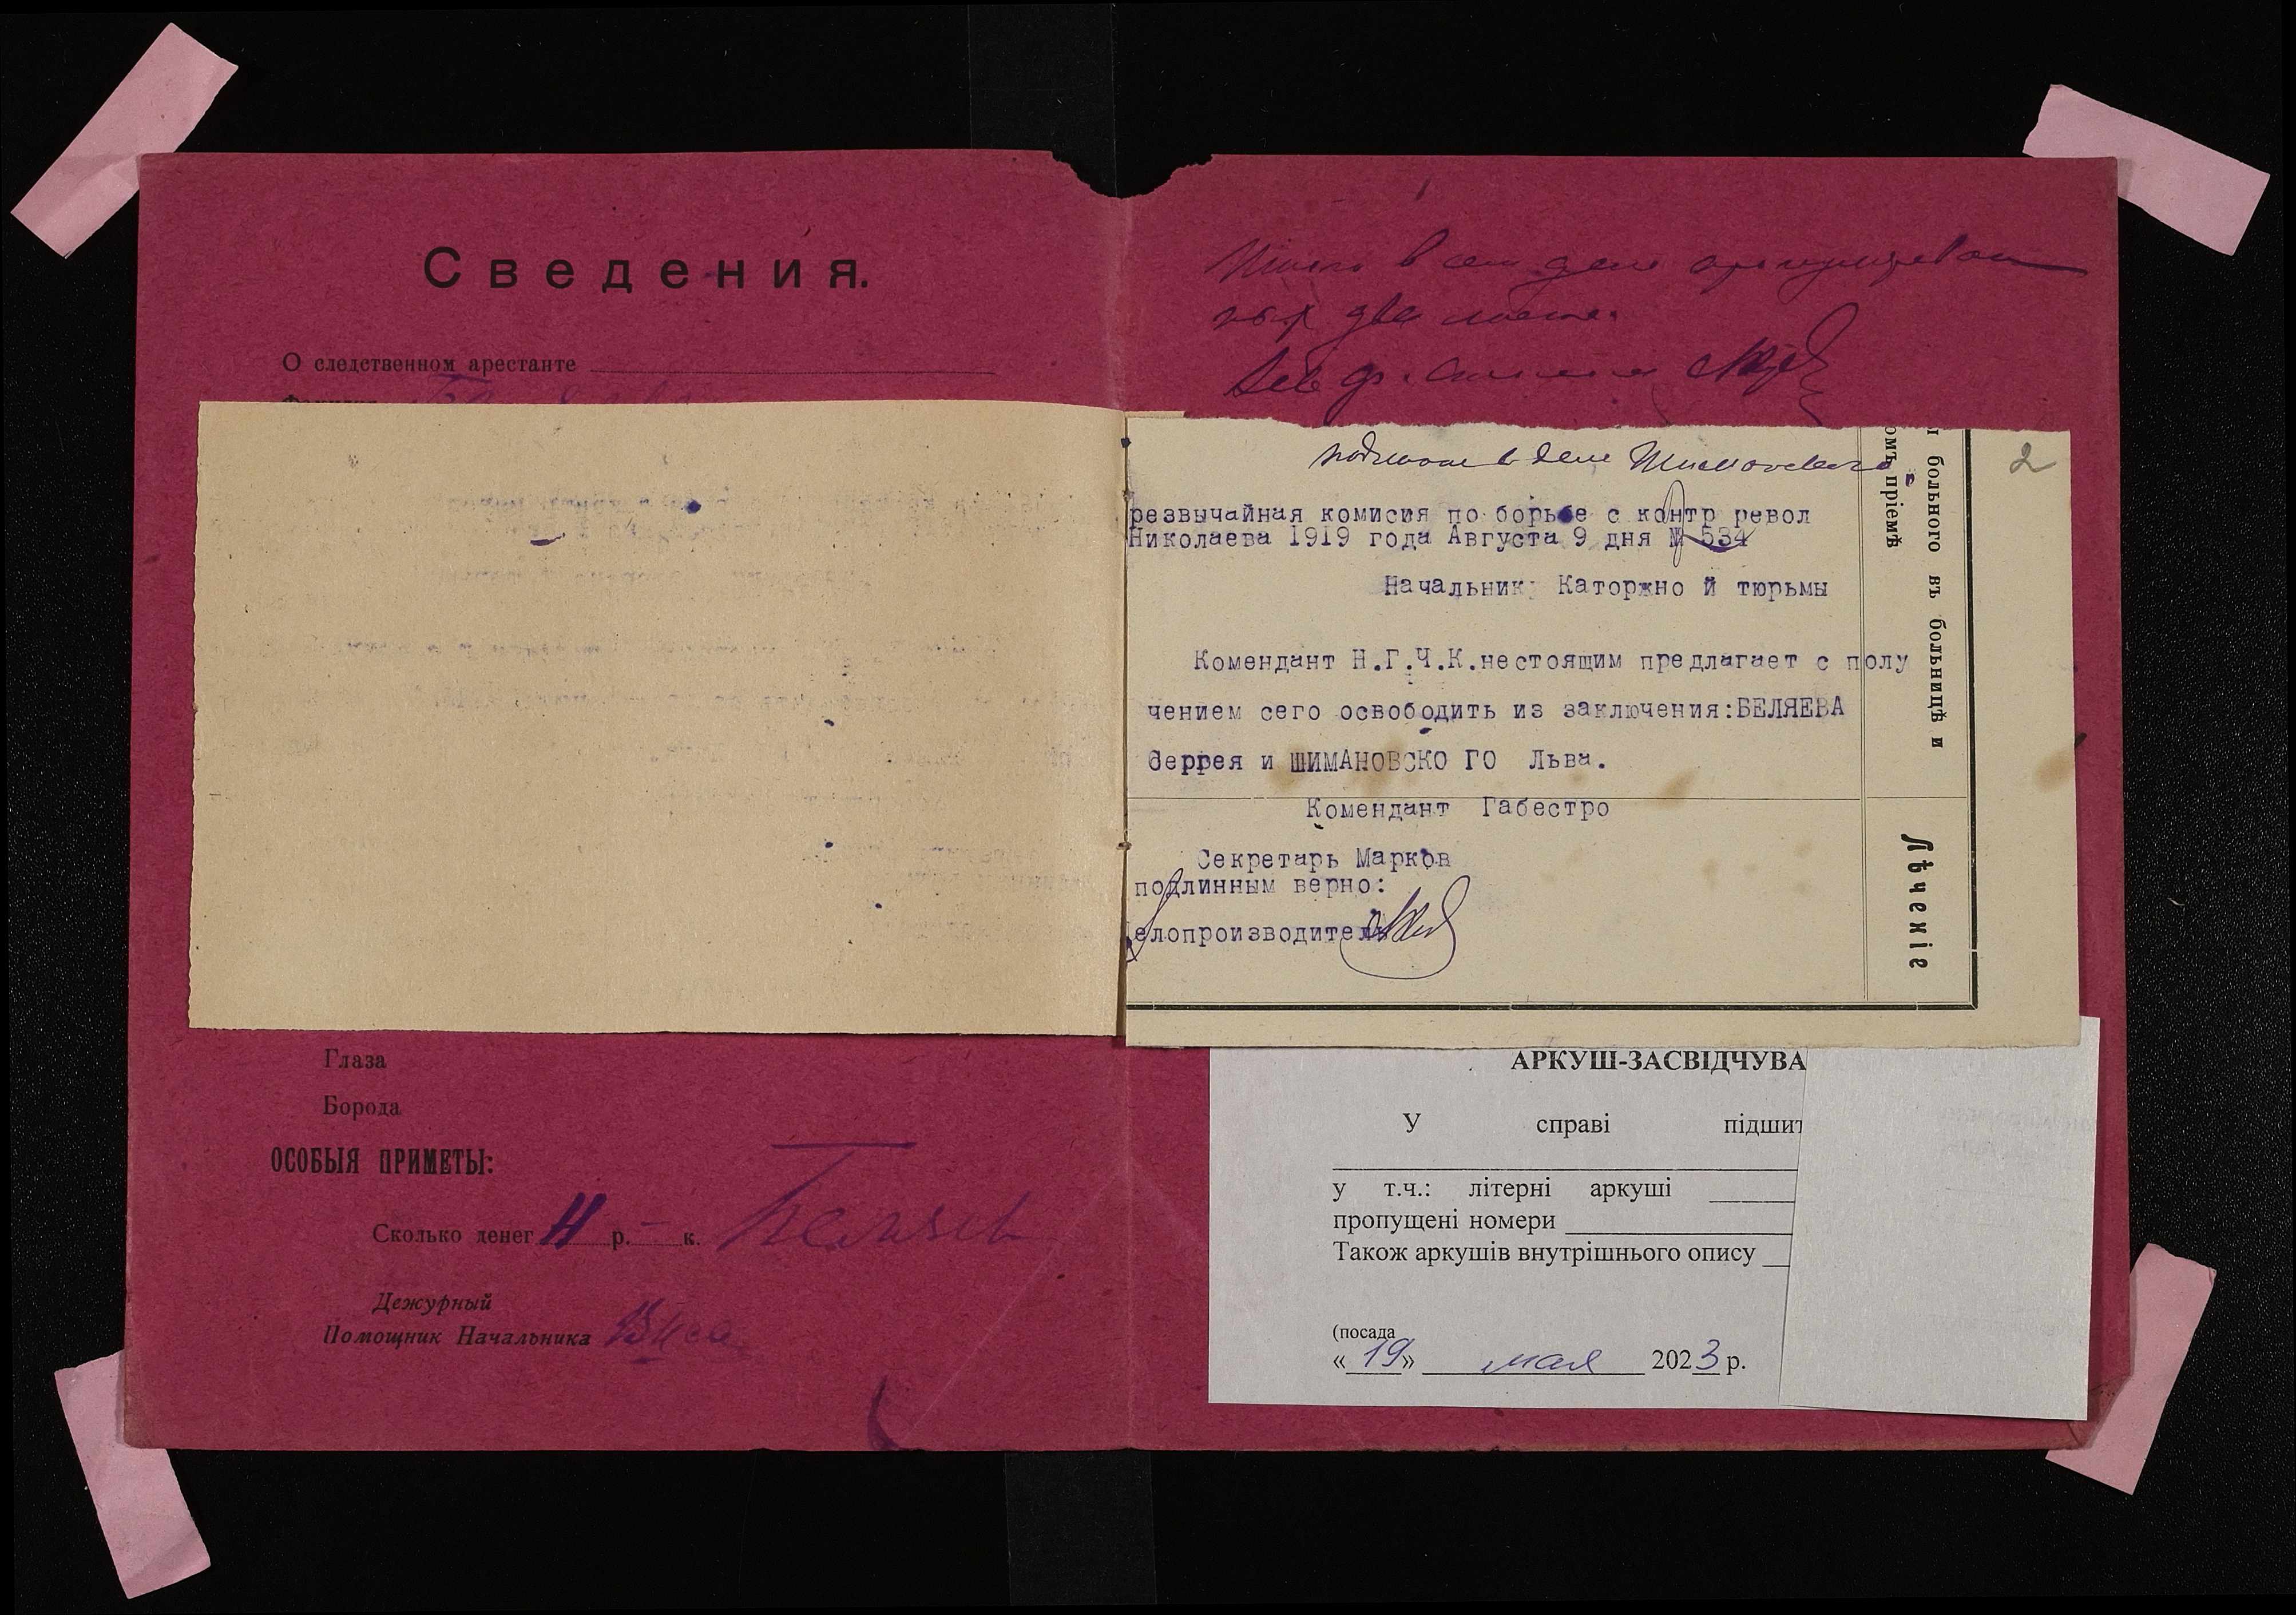 Сведения.
О следственном арестанте
Глаза
Борода
ОСОБЫЯ ПРИМЕТЫ:
Сколько денег 11 р. — к. Беляев
Дежурный
Помощник Начальника
Итого в сем деле пронумерован
ных два листа.
подлинник в деле Шимановского
2
резвычайная комисия по борьбе с контр револ
Николаева 1919 года Августа 9 дня № 534
Начальник Каторжно й тюрьмы
Комендант Н.Г.Ч.К.нестоящим предлагает с полу
чением сего освободить из заключения:БЕЛЯЕВА
беррея и ШИМАНОВСКО ГО Льва.
Комендант Габестро
Секретарь Марков
подлинным верно:
елопроизводитель
омъ пріемѣ
и больного въ больницѣ и
Лѣченіе
АРКУШ-ЗАСВІДЧУВА
У справі підшит
у т.ч.: літерні аркуші
пропущені номери
Також аркушів внутрішнього опису
(посада
« 19 » мая 2023 р.